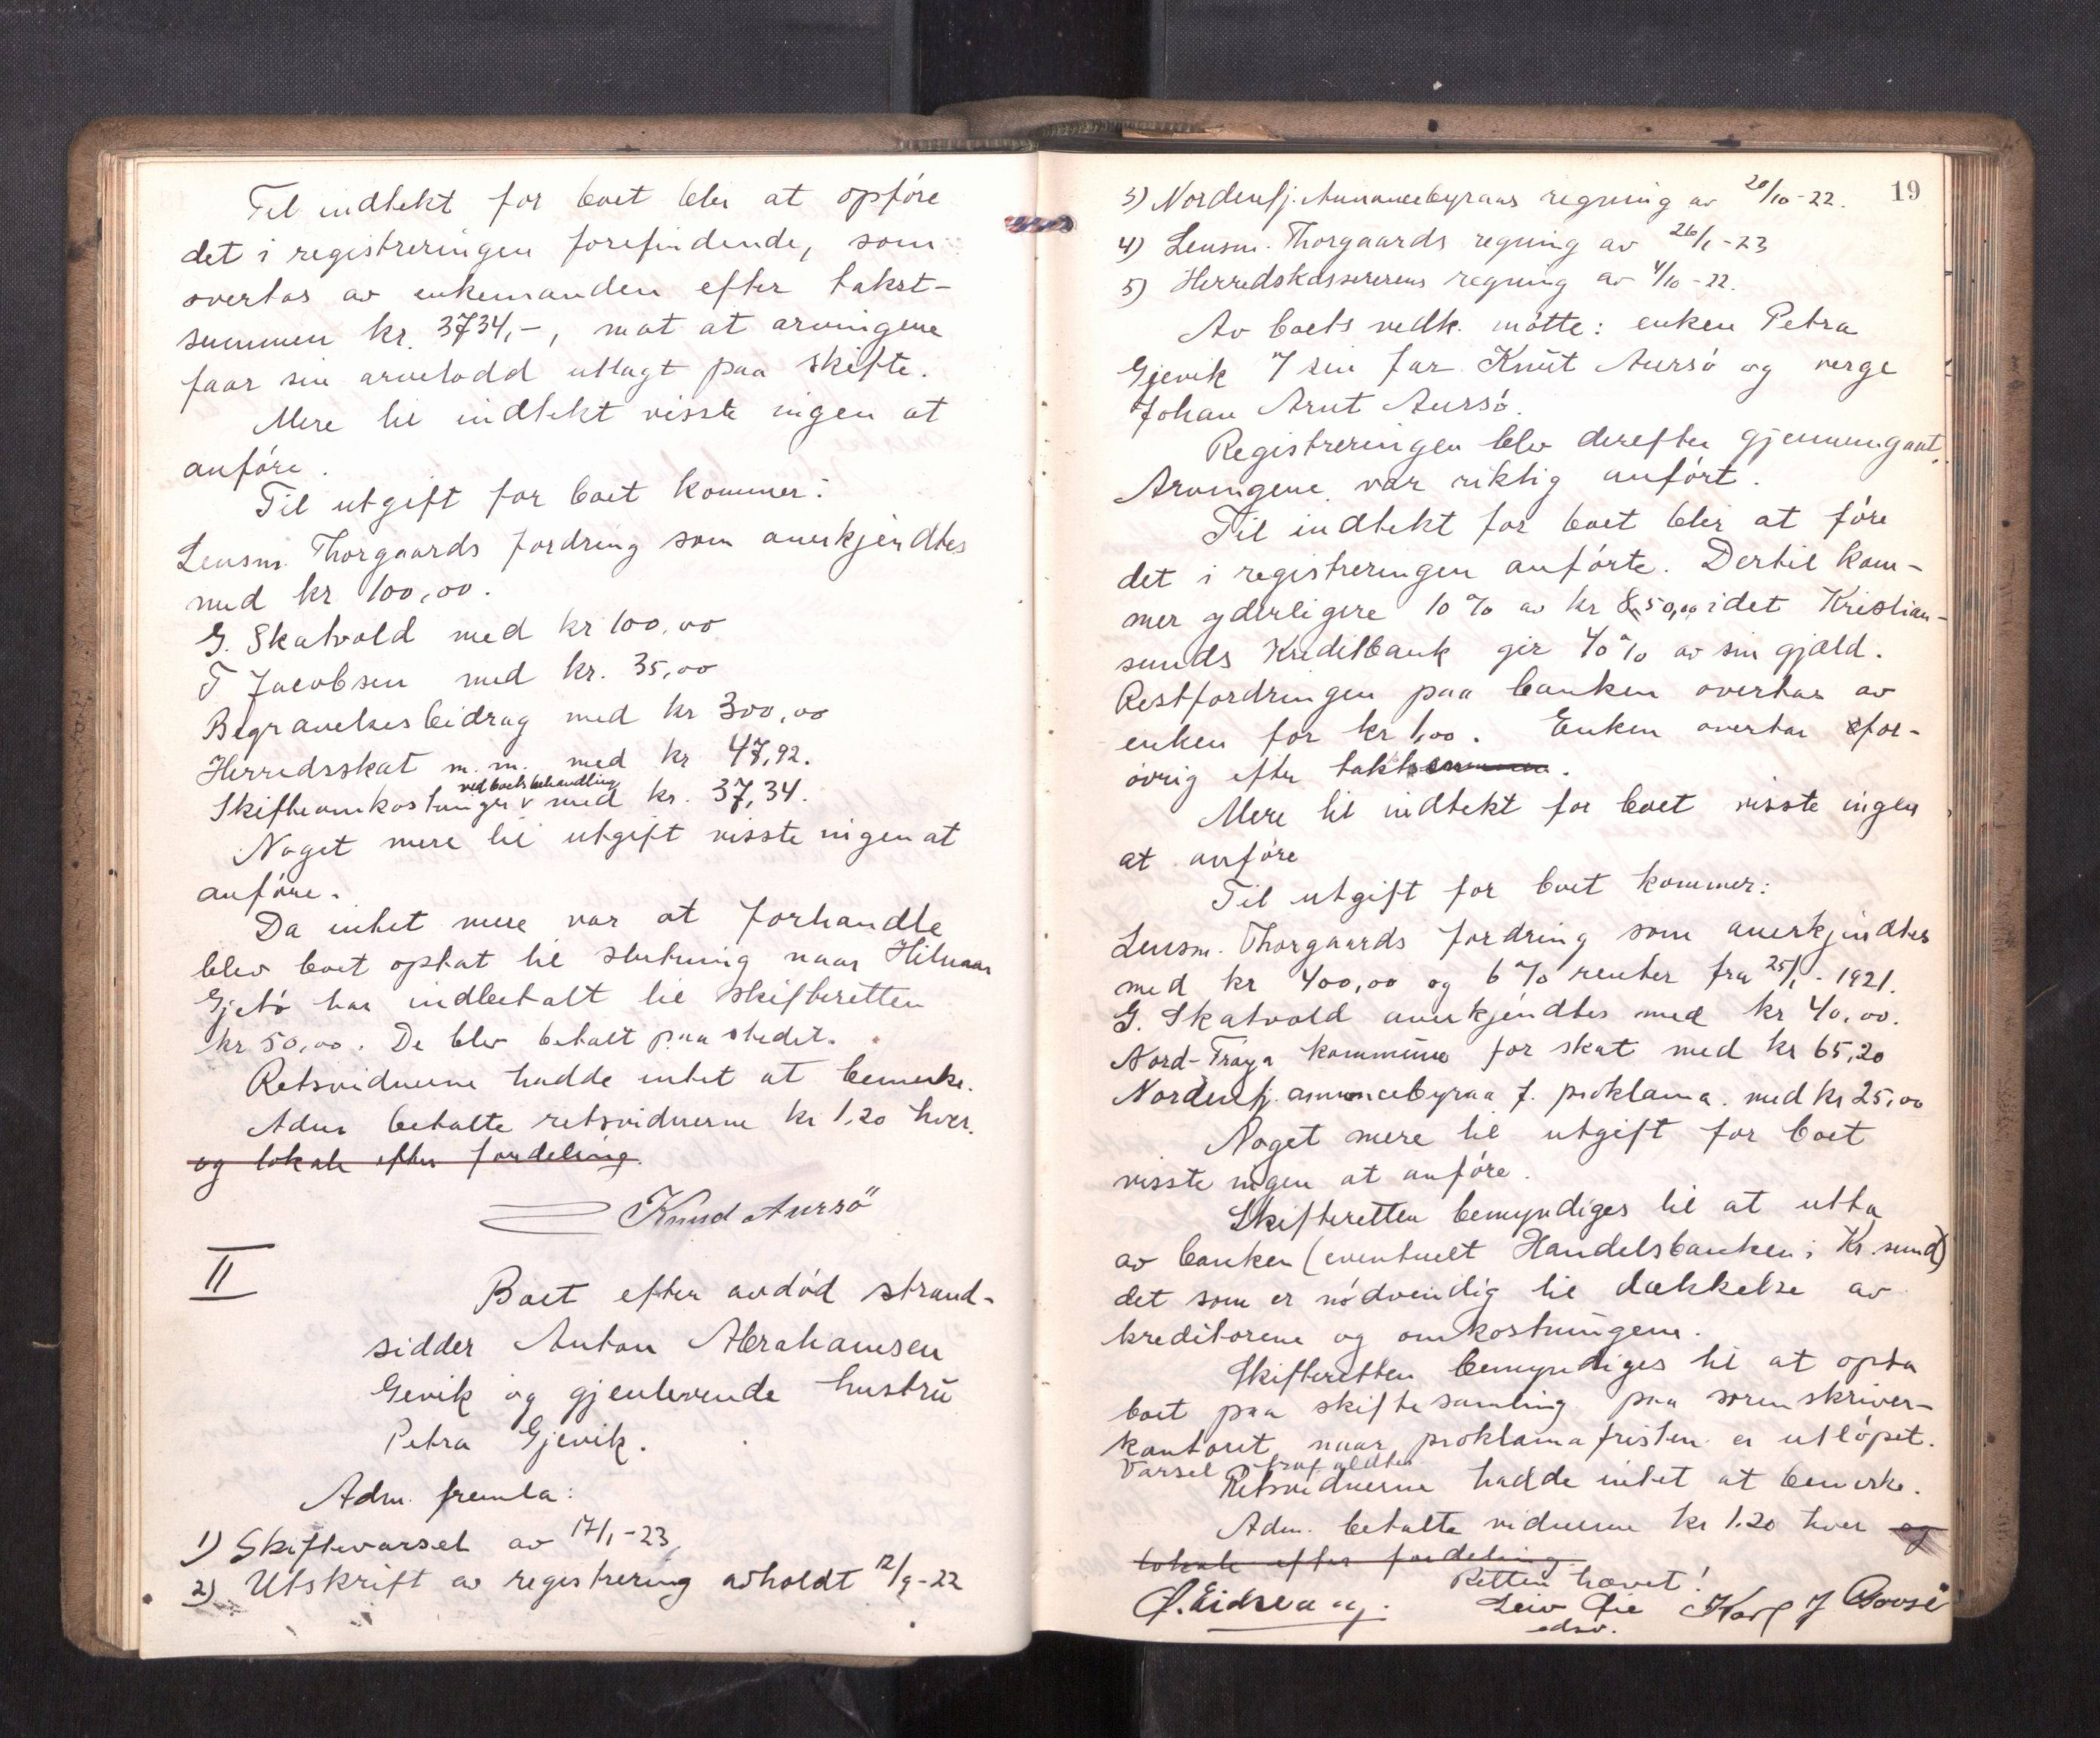 Til indtekt for boet blir at opföre
det i registreringen forefindende, som
overtas av enkemanden efter takst-
summen kr. 3734,-, mot at arvingene
faar sin arvelodd utlagt paa skifte.
Mere til indtekt visste ingen at
anföre.
Til utgift for boet kommer:
Lensm. Thorgaards fordring som anerkjendtes
med kr 100,00.
G. Skatvold med kr 100,00
T Jacobsen med kr. 35,00
Begravelsesbidrag med kr 300,00
Herredsskat m. m. med kr 47,92.
ved boets behandling
Skifteomkostninger v med kr. 37,34.
Noget mere til utgift visste ingen at
anföre.
Da intet mere var at forhandle
blev boet optat til slutning naar Hilmar
Gjetö har indbetalt til skifteretten
kr 50,00. De blev betalt paa stedet.
Retsvidnerne hadde intet at bemerke.
Adm betalte retsvidnerne kr 1.20 hver.
og lokale efter fordeling.
Knud Aursö
II
Boet efter avdöd strand-
sidder Anton Abrahamsen
Gevik og gjenlevende hustru
Petra Gjevik.
Adm. fremla:
1) Skiftevarsel av 17/1-23,
2) Utskrift av registrering avholdt 12/9-22
19
3) Nordenfj. Annoncebyraas regning av 20/10-22.
4) Lensm. Thorgaards regning av 26/1-23
5) Herredskassererens regning av 4/10-22.
Av boets vedk. mötte: enken Petra
Gjevik / sin far Knut Aursö og verge
Johan Arnt Aursö.
Registreringen blev derefter gjennemgaat.
Arvingene var riktig anfört.
Til indtekt for boet blir at före
det i registreringen anförte. Dertil kom-
mer yderligere 10 % av kr 850,00 idet Kristian-
sunds Kreditbank gir 40 % av sin gjæld.
Restfordringen paa banken overtas av
enken for kr 1,00. Enken overtar for-
övrig efter takstsummen.
Mere til indtekt for boet visste ingen
at anföre
Til utgift for boet kommer:
Lensm. Thorgaards fordring som anerkjendtes
med kr 400,00 og 6 % renter fra 25/1-1921.
G. Skatvold anerkjendtes med kr 40,00.
Nord-Fröya kommune for skat med kr 65,20
Nordenfj. annoncebyraa f. proklama. med kr 25,00
Noget mere til utgift for boet
visste ingen at anföre.
Skifteretten bemyndiges til at utta
av banken (eventuelt Handelsbanken i Kr.sund)
det som er nödvendig til dækkelse av
kreditorene og omkostningene.
Skifteretten bemyndiges til at opta
boet paa skiftesamling paa sorenskriver-
kontoret, naar proklamafristen er utlöpet.
Varsel frafaldtes
Retsvidnerne hadde intet at bemerke.
Adm. betalte vidnerne kr 1.20 hver og
lokale efter fordeling.
Retten hævet!
edsv. Karl J